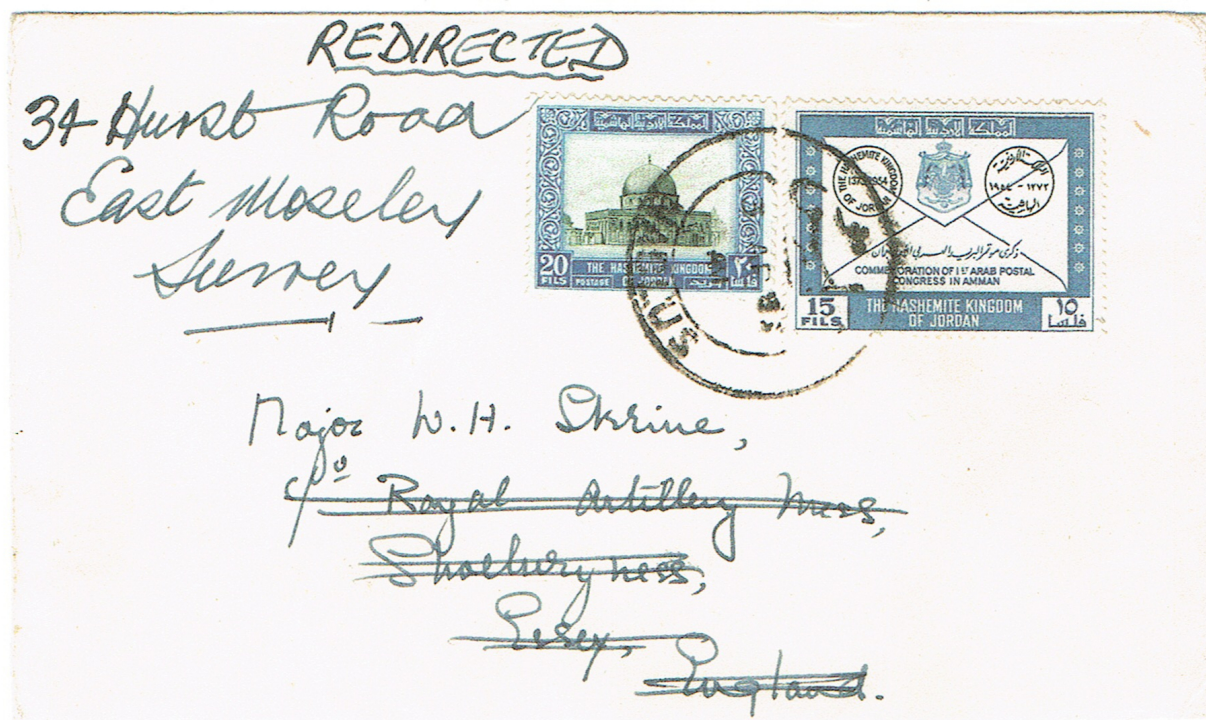 REDIRECTED
34 Hurst Road
East Moseley
Surrey
المملكة الأردنية الهاشمية
20 FILS
THE HASHEMITE KINGDOM
POSTAGE OF JORDAN بريد
٢٠ فلسا
المملكة الأردنية الهاشمية
THE HASHEMITE KINGDOM OF JORDAN
1954
١٩٥٤ - ١٣٧٣
COMMEMORATION OF 1ST ARAB POSTAL
CONGRESS IN AMMAN
15 FILS
THE HASHEMITE KINGDOM
OF JORDAN
١٥ فلسا
Major W. H. Skrine,
c/o Royal Artillery Mess,
Shoeburyness,
Essex,
England.